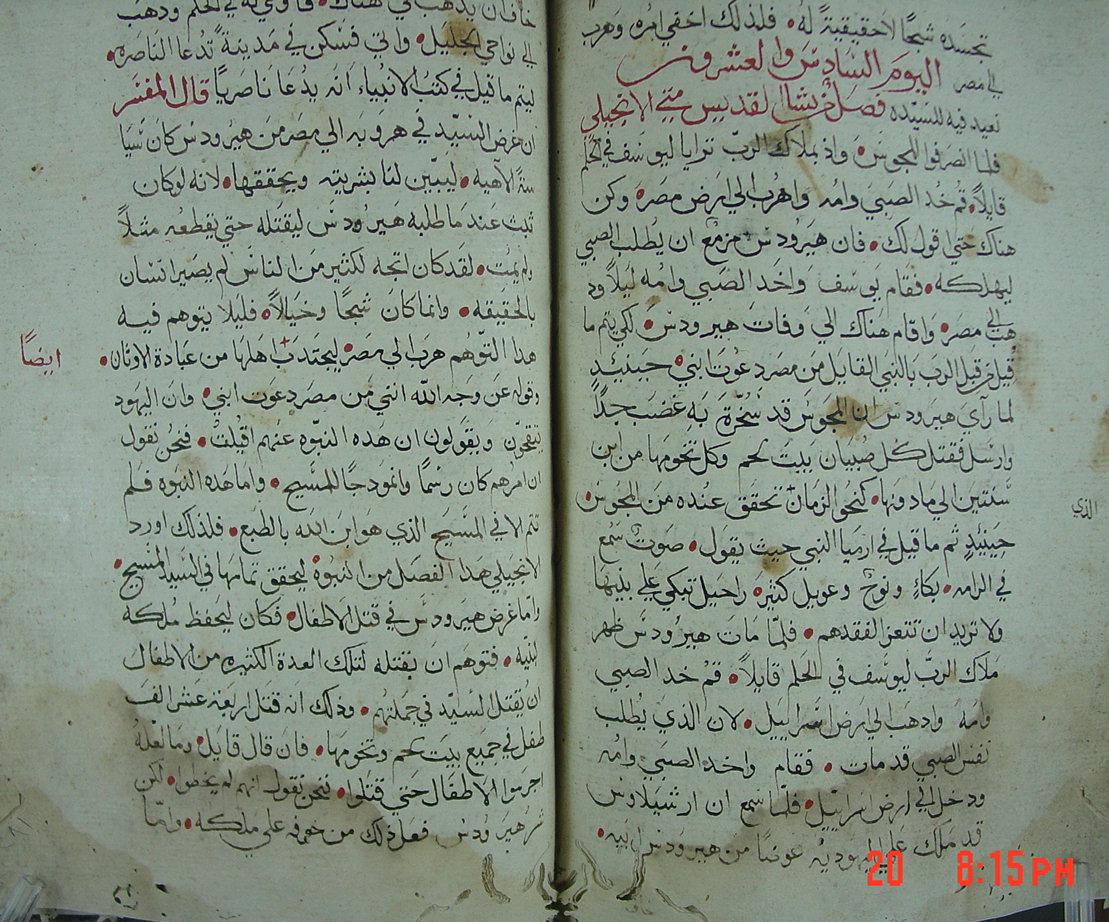 تجسده شبحًا لاحقيقية له • فلذلك اخفي امره وهرب
الي مصر اليوم السادس والعشرون
نعيد فيه للسيده فصل من بشارة القديس متي الانجيلي
فلما انصرفوا المجوس • واذ بملاك الرب ترايا ليوسف في الحلم
قايلاً • قم خد الصبي وامه واهرب الي ارض مصر • وكن
هناك حتي اقول لك • فان هيرودس مزمع ان يطلب الصبي
ليهلكه • فقام يوسف واخد الصبي وامه ليلاً ود
هب الي مصر • واقام هناك الي وفات هيرودس • لكي يتم ما
قيل من قبل الرب بالنبي القايل من مصر دعوت ابني • حينيد
لما رآي هيرودس ان المجوس قد سخرة به غضب جدًا
وارسل فقتل كل صبيان بيت لحم وكل تخومها من ابن
سنتين الي مادونها • كنحو الزمان تحقق عنده من المجوس •
الذي
حينيدٍ تم ما قيل في ارميا النبي حيث يقول • صوت سمع
في الرامه • بكاءٍ ونوح وعويل كثير • راحيل تبكي علي بنيها
ولا تريد ان تتعزا لفقدهم • فلما مات هيرودس ظهر
ملاك الرب ليوسف في الحلم قايلاً • قم خد الصبي
وامه وادهب الي ارض اسراييل • لان الذي يطلب
نفس الصبي قد مات • فقام واخد الصبي وامه
ودخل الي ارض اسراييل • فلما سمع ان ارشيلاوس
قد ملك علي اليهوديه عوضًا من هيرودس ابيه •
خاف ان يذهب الي هناك • في الحلم ودهب
الي نواحي الجليل • واتي فسكن في مدينة تدعا الناصره •
ليتم ما قيل في كتب الانبياء انه يدعا ناصريًا قال المفسر
ان غرض السيد في هروبه الي مصر من هيرودس كان شيا
الآهيه • ليبين لنا بشريته ويحققها • لانه لوكان
ثبت عند ما طلبه هيرودس ليقتله حتي يقطعه مثلاً
ولم يمت • لقد كان اتجه لكثير من الناس لم يصير انسان
بالحقيقه • وانما كان شبحًا وخيالاً • فليلا يتوهم فيه
هدا التوهم هرب الي مصر ليجتدب اهلها من عبادة الاوثان •
ايضاً
وقوله عن وجه الله انني من مصر دعوت ابني • وان اليهود
يتقحون ويقولون ان هده النبوه عنهم اقيلت • فنحن نقول
ان امرهم كان رسمًا وانمودجًا للمسيح • واما هده النبوه فلم
تتم الا في المسيح الذي هو ابن الله بالطبع • فلذلك اورد
الانجيلي هدا الفصل من النبوه ليحقق تمامها في السيد المسيح •
واما غرض هيرودس في قتل الاطفال • فكان ليحفظ ملكه
لبنيه • فتوهم ان بقتله لتلك العدة الكثيره من الاطفال
ان يقتل السيد في جملتهم • وذلك انه قتل اربعة عشر الف
طفل في جميع بيت لحم وتخومها • فان قال قايل • وما لعله
اجرموا الاطفال حتي قتلوا • فنحن نقول انهم لم يخطوا • لكن
شر هيرودس فعل ذلك من خوفه علي ملكه • وانما
20 8:15 PM